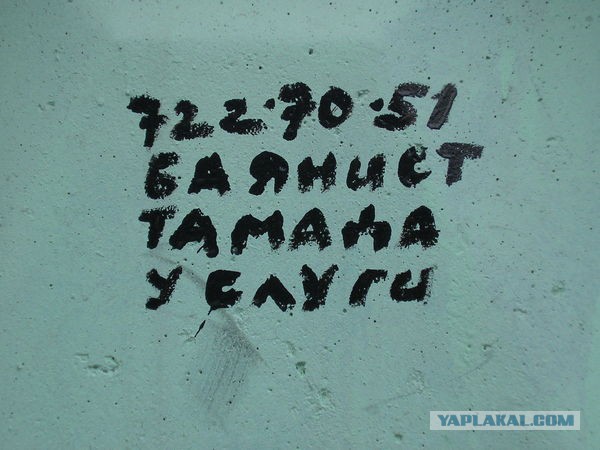 722·70·51
БАЯНИСТ
ТАМАДА
УСЛУГИ
YAPLAKAL.COM